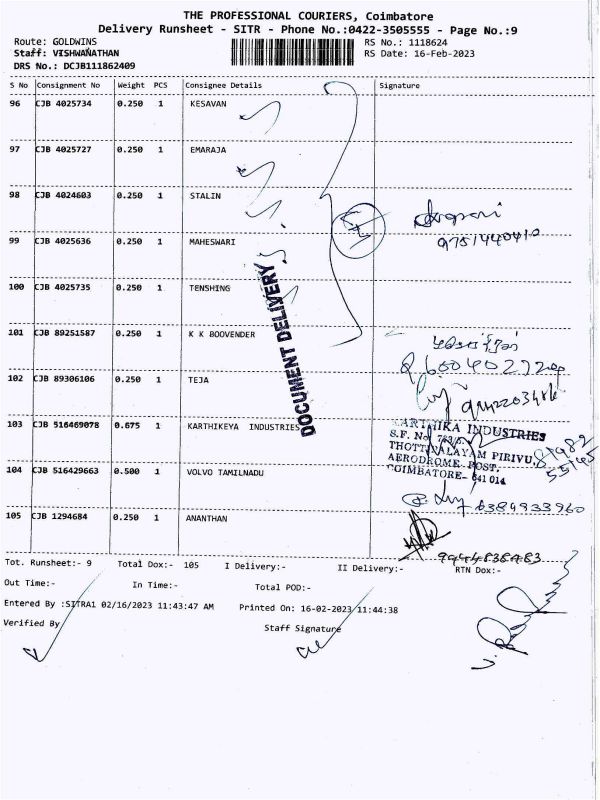 THE PROFESSIONAL COURIERS, Coimbatore
Delivery Runsheet - SITR - Phone No.:0422-3505555 - Page No.:9
Route: GOLDWINS
RS No.: 1118624
Staff: VISHWANATHAN
RS Date: 16-Feb-2023
DRS No.: DCJB111862409
S No Consignment No Weight PCS Consignee Details Signature
96 CJB 4025734 0.250 1 KESAVAN
97 CJB 4025727 0.250 1 EMARAJA
98 CJB 4024603 0.250 1 STALIN
99 CJB 4025636 0.250 1 MAHESWARI
9751440410
100 CJB 4025735 0.250 1 TENSHING
DOCUMENT DELIVERY
101 CJB 89251587 0.250 1 K K BOOVENDER
102 CJB 89306106 0.250 1 TEJA
103 CJB 516469078 0.675 1 KARTHIKEYA INDUSTRIES
KARTHIKA INDUSTRIES
S.F. No.
THOTTIPALAYAM PIRIVU,
AERODROME POST,
COIMBATORE- 641 014
104 CJB 516429663 0.500 1 VOLVO TAMILNADU
6384933960
105 CJB 1294684 0.250 1 ANANTHAN
9444838483
Tot. Runsheet:- 9 Total Dox:- 105 I Delivery:- II Delivery:- RTN Dox:-
Out Time:- In Time:- Total POD:-
Entered By :SITRA1 02/16/2023 11:43:47 AM Printed On: 16-02-2023 11:44:38
Verified By
Staff Signature